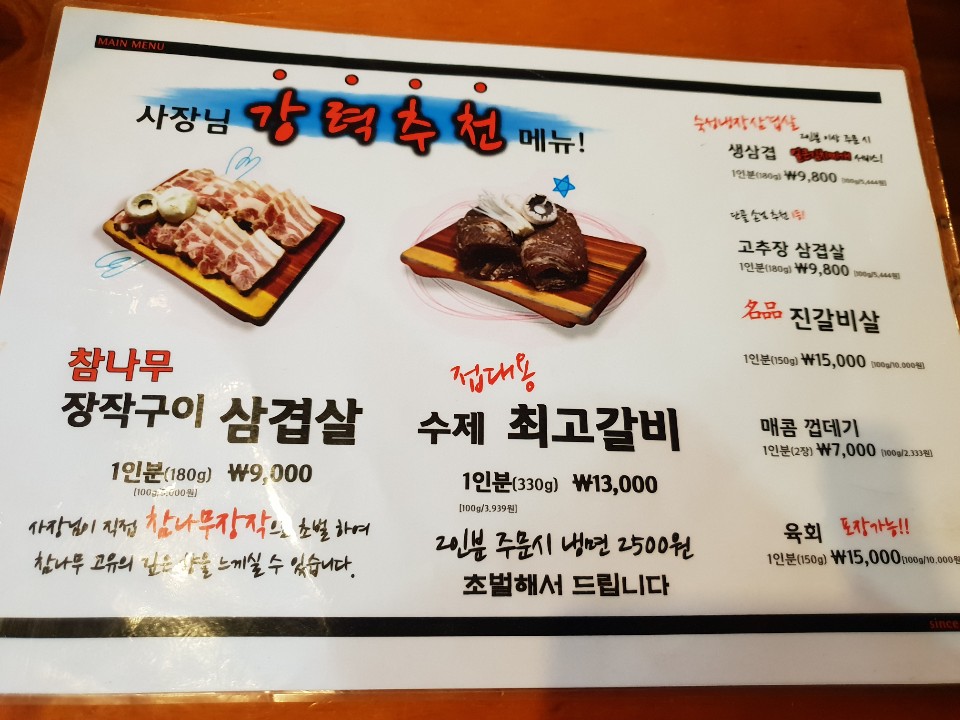 MAIN MENU
사장님 강력추천 메뉴!
참나무
장작구이 삼겹살
1인분(180g) ₩9,000
[100g/5,000원]
사장님이 직접 참나무장작으로 초벌 하여
참나무 고유의 깊은 향을 느끼실 수 있습니다.
접대용
수제 최고갈비
1인분(330g) ₩13,000
[100g/3.939원]
2인분 주문시 냉면 2500원
초벌해서 드립니다
숙성냉장삼겹살
2인분 이상 주문 시
생삼겹 서비스!
1인분(180g) ₩9,800 [100g/5,444원]
단골 손님 추천
고추장 삼겹살
1인분(180g) ₩9,800 [100g/5,444원]
名品 진갈비살
1인분(150g) ₩15,000 [100g/10.000원]
매콤 껍데기
1인분(2장) ₩7,000 [100g/2.333원]
육회 포장가능!!
1인분(150g) ₩15,000 [100g/10.000원
since